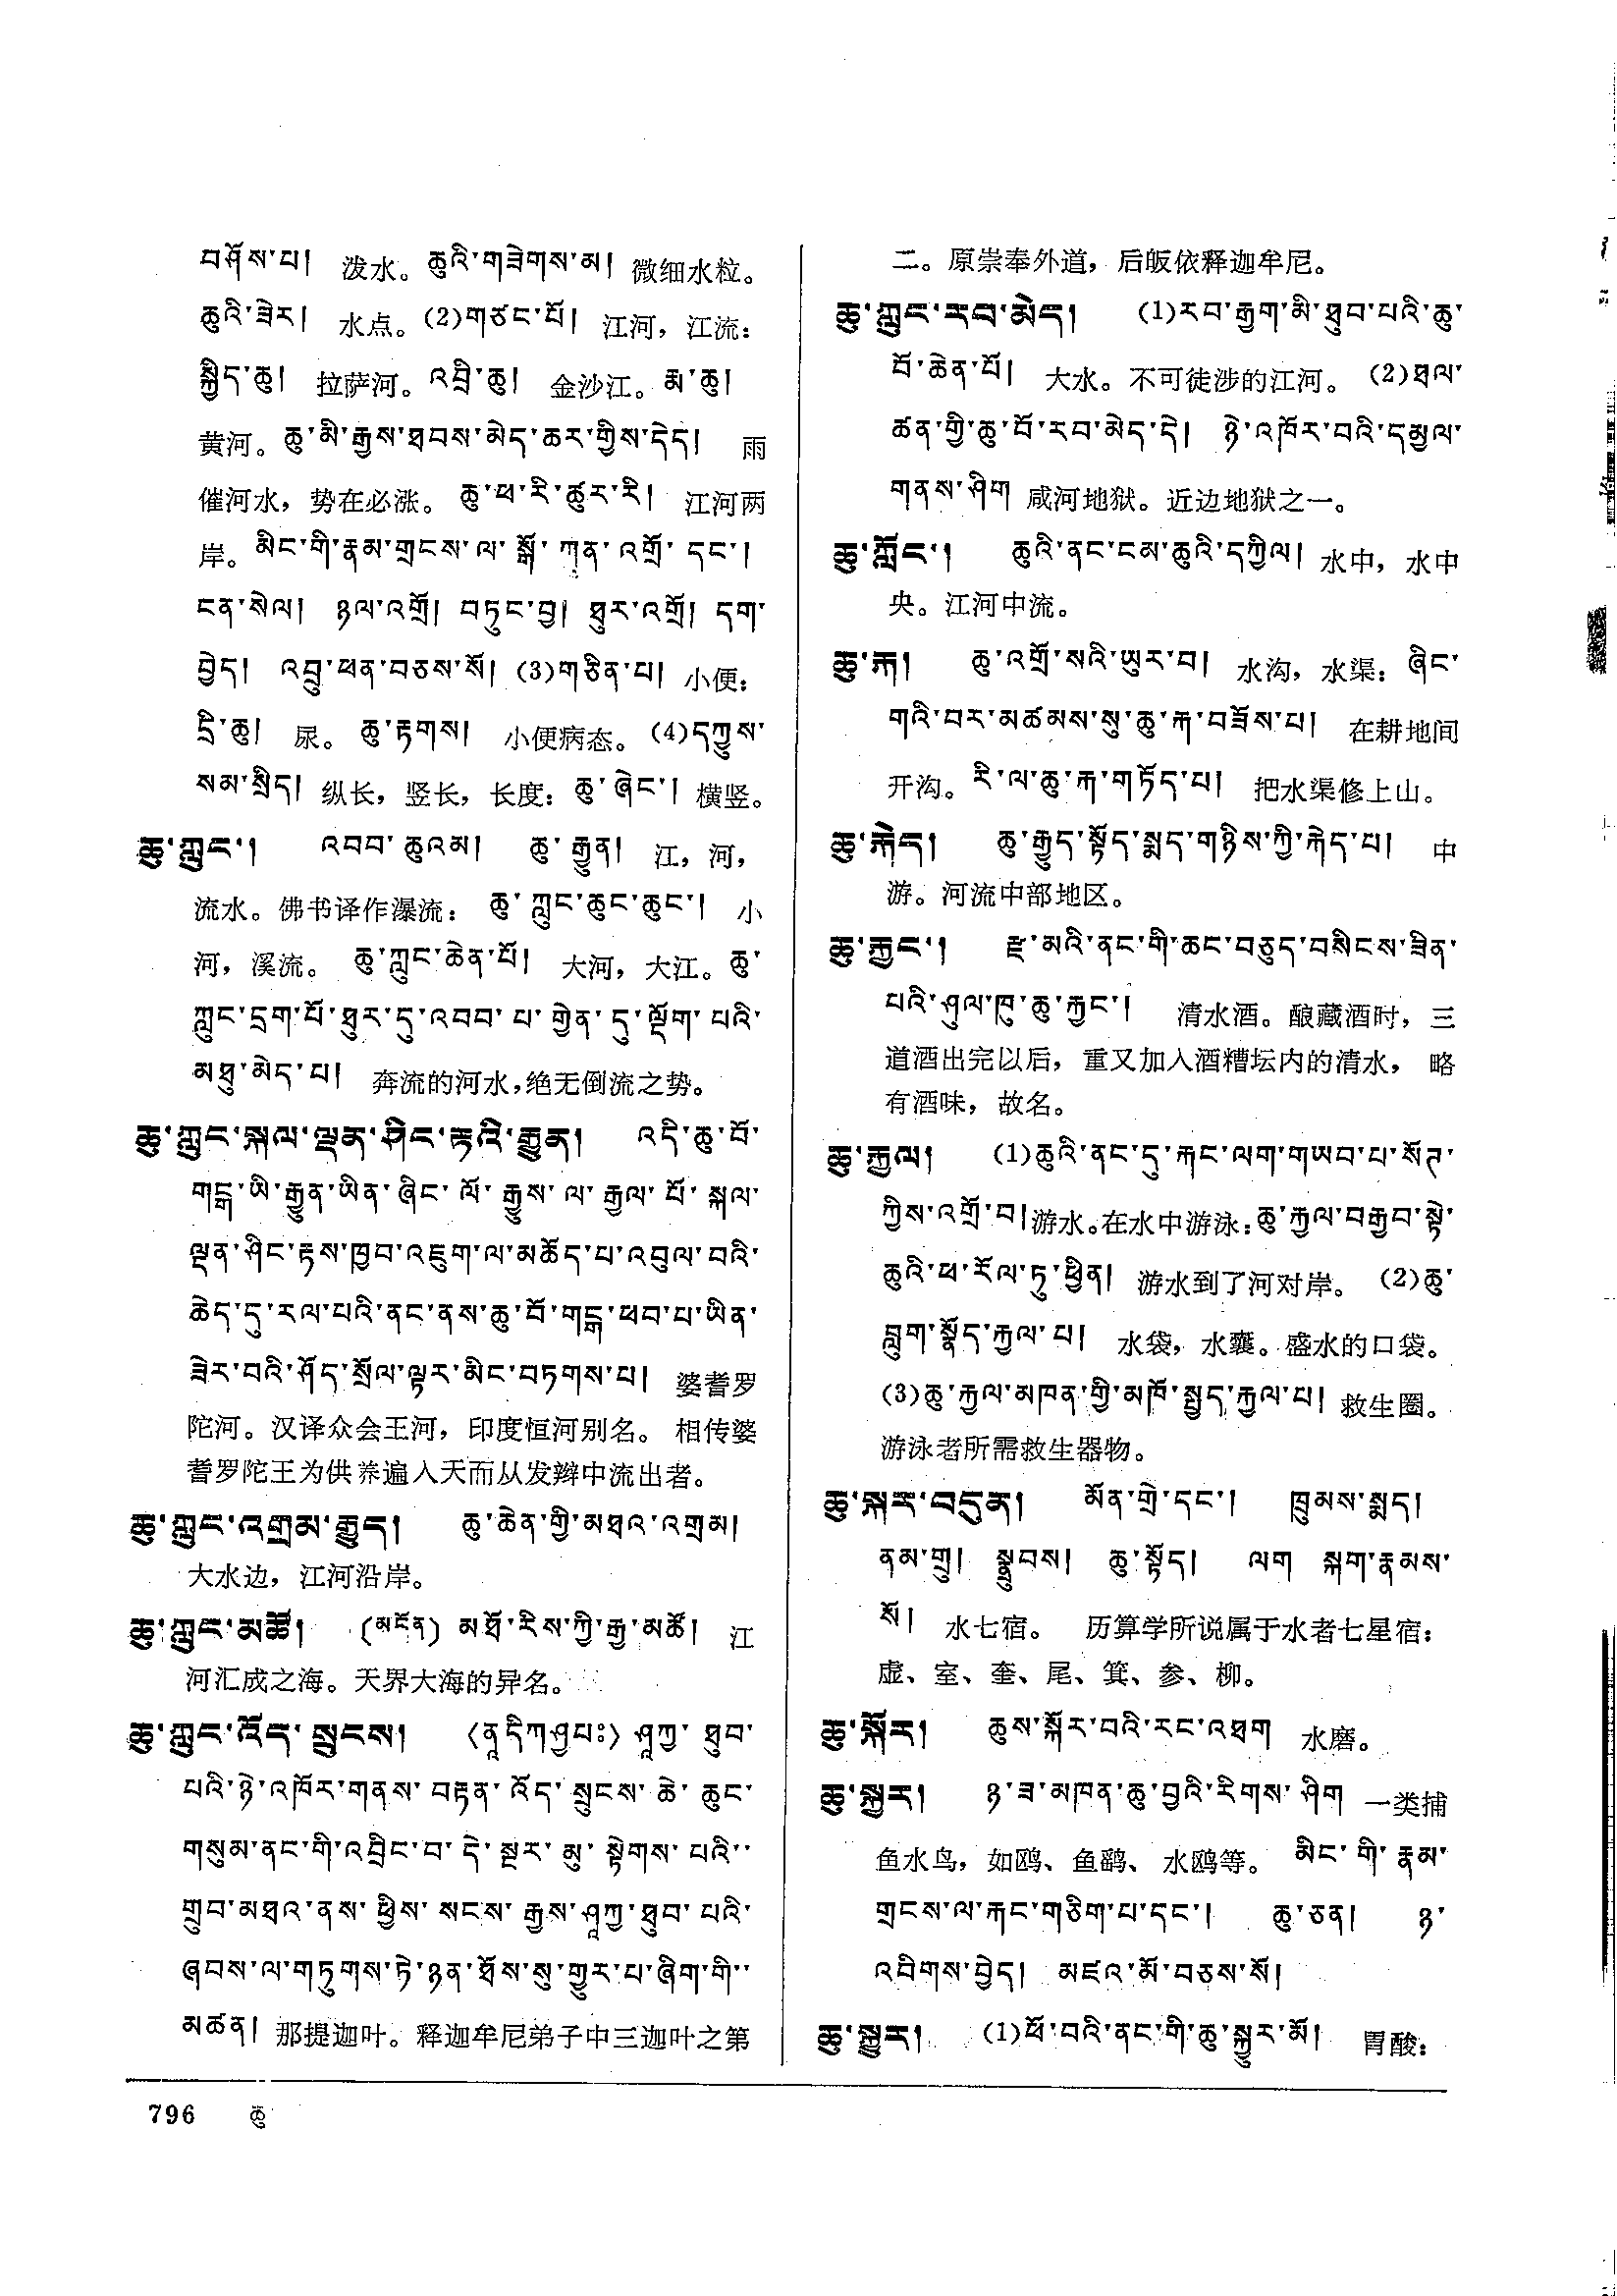 བཤོས་པ། 泼水。ཆུའི་གཟེགས་མ། 微细水粒。
ཆུའི་ཟེར། 水点。(2)གཙང་པོ། 江河，江流：
སྐྱིད་ཆུ། 拉萨河。འབྲི་ཆུ། 金沙江。རྨ་ཆུ།
黄河。ཆུ་མི་རྒྱས་ཐབས་མེད་ཆར་གྱིས་དེད། 雨
催河水，势在必涨。ཆུ་ཕ་རི་ཚུར་རི། 江河两
岸。མིང་གི་རྣམ་གྲངས་ལ་སྒྲོ་ཀུན་འགྲོ་དང་།
ངན་སེལ། ཉལ་འགྲོ། བཏུང་བྱ། ཐུར་འགྲོ། དག་
བྱེད། འབྲུ་ཕན་བཅས་སོ། (3)གཅིན་པ། 小便：
དྲི་ཆུ། 尿。ཆུ་རྟགས། 小便病态。(4)དཀྱུས་
སམ་སྲིད། 纵长，竖长，长度：ཆུ་ཞེང་། 横竖。
ཆུ་ཀླུང་། འབབ་ཆུའམ། ཆུ་རྒྱུན། 江，河，
流水。佛书译作瀑流：ཆུ་ཀླུང་ཆུང་ཆུང་། 小
河，溪流。ཆུ་ཀླུང་ཆེན་པོ། 大河，大江。ཆུ་
ཀླུང་དྲག་པོ་ཐུར་དུ་འབབ་པ་གྱེན་དུ་ལྡོག་པའི་
མཐུ་མེད་པ། 奔流的河水,绝无倒流之势。
ཆུ་ཀླུང་སྐལ་ལྡན་ཤིང་རྟའི་རྒྱུན། འདི་ཆུ་བོ་
གངྒཱ་ཡི་རྒྱུན་ཡིན་ཞིང་ལོ་རྒྱུས་ལ་རྒྱལ་པོ་སྐལ་
ལྡན་ཤིང་རྟས་ཁྱབ་འཇུག་ལ་མཆོད་པ་འབུལ་བའི་
ཆེད་དུ་རལ་པའི་ནང་ནས་ཆུ་བོ་གངྒཱ་ཕབ་པ་ཡིན་
ཟེར་བའི་ཤོད་སྲོལ་ལྟར་མིང་བཏགས་པ། 婆耆罗
陀河。汉译众会王河，印度恒河别名。相传婆
耆罗陀王为供养遍入天而从发辫中流出者。
ཆུ་ཀླུང་འགྲམ་རྒྱུད། ཆུ་ཆེན་གྱི་མཐའ་འགྲམ།
大水边，江河沿岸。
ཆུ་ཀླུང་མཚོ། (མངོན) མཐོ་རིས་ཀྱི་རྒྱ་མཚོ། 江
河汇成之海。天界大海的异名。
ཆུ་ཀླུང་འོད་སྲུངས། (ནཱདཱིཀཤྱཔཿ) ཤཱཀྱ་ཐུབ་
པའི་ཉེ་འཁོར་གནས་བརྟན་འོད་སྲུངས་ཆེ་ཆུང་
གསུམ་ནང་གི་འབྲིང་བ་དེ་སྔར་མུ་སྟེགས་པའི་
གྲུབ་མཐའ་ནས་ཕྱིས་སངས་རྒྱས་ཤཱཀྱ་ཐུབ་པའི་
ཞབས་ལ་གཏུགས་ཏེ་ཉན་ཐོས་སུ་གྱུར་པ་ཞིག་གི་
མཚན། 那提迦叶。释迦牟尼弟子中三迦叶之第
二。原崇奉外道，后皈依释迦牟尼。
ཆུ་ཀླུང་རབ་མེད། (1)རབ་རྒྱག་མི་ཐུབ་པའི་ཆུ་
བོ་ཆེན་པོ། 大水。不可徒涉的江河。(2)ཐལ་
ཚན་གྱི་ཆུ་བོ་རབ་མེད་དེ། ཉེ་འཁོར་བའི་དམྱལ་
གནས་ཤིག 咸河地狱。近边地狱之一。
ཆུ་ཀློང་། ཆུའི་ནང་ངམ་ཆུའི་དཀྱིལ། 水中，水中
央。江河中流。
ཆུ་རྐ། ཆུ་འགྲོ་སའི་ཡུར་བ། 水沟，水渠：ཞིང་
གའི་བར་མཚམས་སུ་ཆུ་རྐ་བཟོས་པ། 在耕地间
开沟。རི་ལ་ཆུ་རྐ་གཏོད་པ། 把水渠修上山。
ཆུ་རྐེད། ཆུ་རྒྱུད་སྟོད་སྨད་གཉིས་ཀྱི་རྐེད་པ། 中
游。河流中部地区。
ཆུ་རྐྱང་། རྫ་མའི་ནང་གི་ཆང་བཅུད་བསིངས་ཟིན་
པའི་ཤུལ་ཁུ་ཆུ་རྐྱང་། 清水酒。酿藏酒时，三
道酒出完以后，重又加入酒糟坛内的清水，略
有酒味，故名。
ཆུ་རྐྱལ། (1)ཆུའི་ནང་དུ་རྐང་ལག་གཡབ་པ་སོཊ་
ཀྱིས་འགྲོ་བ།游水。在水中游泳：ཆུ་རྐྱལ་བརྒྱབ་སྟེ་
ཆུའི་ཕ་རོལ་ཏུ་ཕྱིན། 游水到了河对岸。(2)ཆུ་
བླུག་སྣོད་རྐྱལ་པ། 水袋，水囊。盛水的口袋。
(3)ཆུ་རྐྱལ་མཁན་གྱི་མཁོ་སྤྱད་རྐྱལ་པ། 救生圈。
游泳者所需救生器物。
ཆུ་སྐར་བདུན། མོན་གྲེ་དང་། ཁྲུམས་སྨད།
ནམ་གྲུ། སྣྲུབས། ཆུ་སྟོད། ལག སྐག་རྣམས་
སོ། 水七宿。历算学所说属于水者七星宿：
虚、室、奎、尾、箕、参、柳。
ཆུ་སྐོར། ཆུས་སྐོར་བའི་རང་འཐག 水磨。
ཆུ་སྐྱར། ཉ་ཟ་མཁན་ཆུ་བྱའི་རིགས་ཤིག 一类捕
鱼水鸟，如鸥、鱼鹞、水鸥等。མིང་གི་རྣམ་
གྲངས་ལ་རྐང་གཅིག་པ་དང་། ཆུ་ཅན། ཉ་
འབིགས་བྱེད། མཛའ་མོ་བཅས་སོ།
ཆུ་སྐྱུར། (1)ཕོ་བའི་ནང་གི་ཆུ་སྐྱུར་མོ། 胃酸：
796 ཆུ